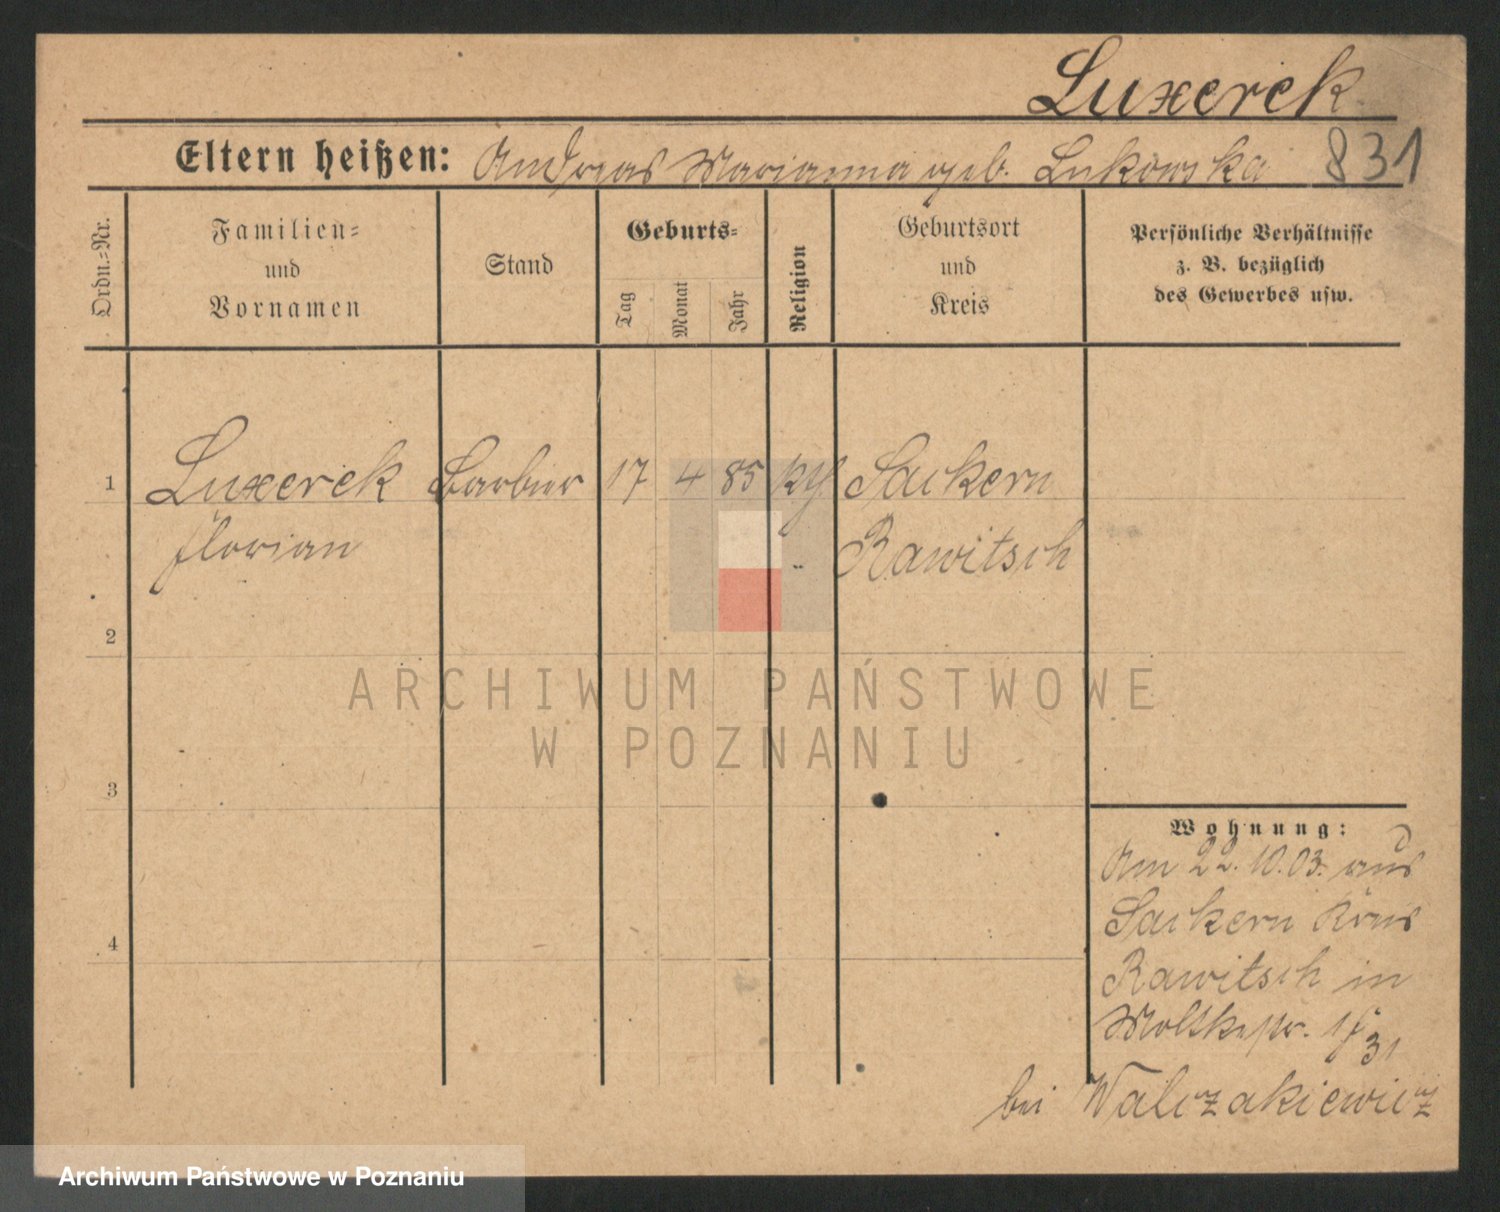 Luxerek
Eltern heißen: Andreas Marianna geb. Lukowska 831
Ordn.-Nr.
Familien=
und
Vornamen
Stand
Geburts=
Tag
Monat
Jahr
Religion
Geburtsort
und
Kreis
Persönliche Verhältnisse
z. B. bezüglich
des Gewerbes usw.
1 Luxerek Barbier 17 4 85 Saikern
Florian Rawitsch
2
ARCHIWUM PAŃSTWOWE
W POZNANIU
3
4
Wohnung:
Am 22.10.03. aus
Saikern Kreis
Rawitsch in
Moltkestr.
31
bei Walczakiewicz
Archiwum Państwowe w Poznaniu